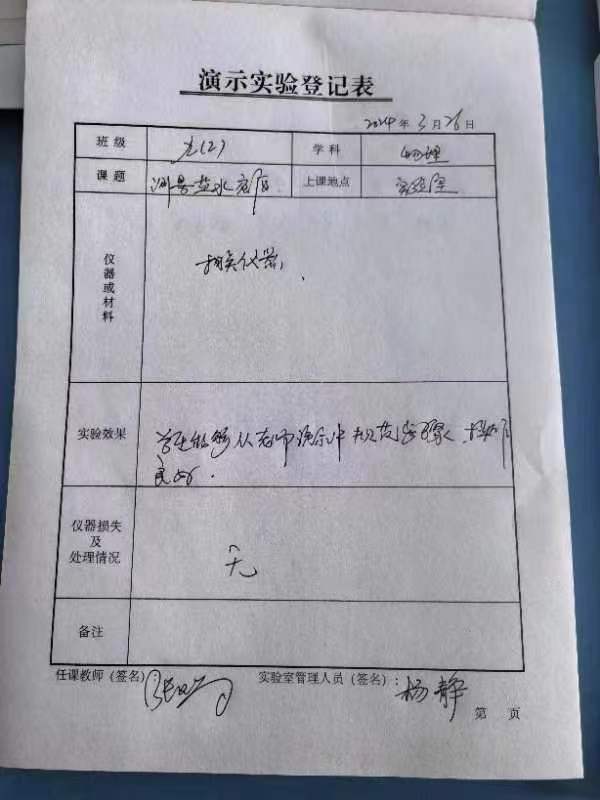 演示实验登记表
2024年3月26日
班级 九(2) 学科 物理
课题 测量盐水密度 上课地点 实验室
仪器或材料 相关仪器
实验效果 学生能够从老师演示中规范步骤、
良好.
仪器损失及处理情况 无
备注
任课教师(签名) 实验室管理人员(签名): 杨静
第 页